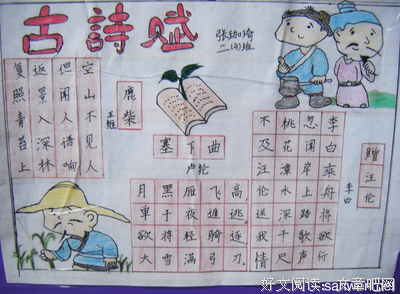 古詩赋
张珈琦
二(4)班
鹿柴
王维
空山不见人
但闻人语响
返景入深林
复照青苔上
塞下曲
卢纶
月黑雁飞高
单于夜遁逃
欲将轻骑逐
大雪满弓刀
贈汪伦
李白
李白乘舟将欲行
忽闻岸上踏歌声
桃花潭水深千尺
不及汪伦送我情
好文阅读:文章吧网